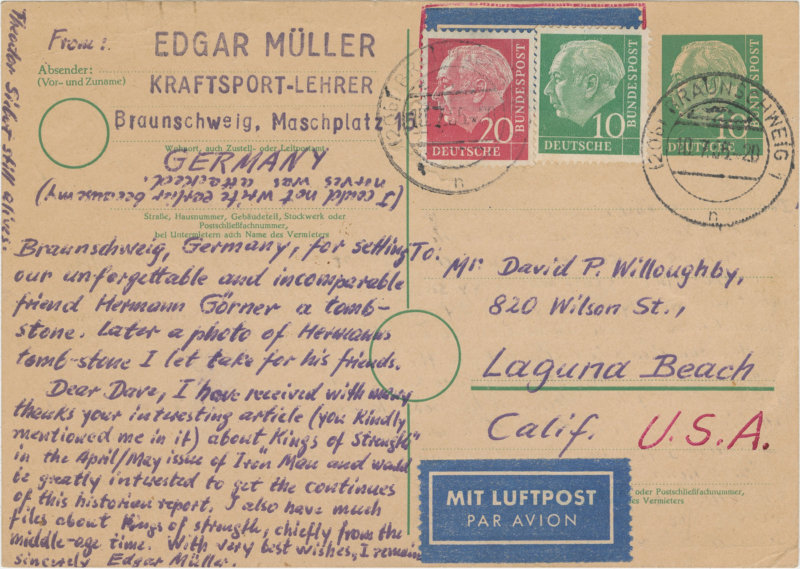 From:
EDGAR MÜLLER
Absender:
(Vor- und Zuname)
KRAFTSPORT-LEHRER
Braunschweig, Maschplatz 15
Wohnort, auch Zustell- oder Leitpostamt
GERMANY
(I could not write earlier because my
nerves was attacked.
Straße, Hausnummer, Gebäudeteil, Stockwerk oder
Postschließfachnummer,
bei Untermietern auch Name des Vermieters
Braunschweig, Germany, for setting
our unforgettable and incomparable
friend Hermann Görner a tomb-
stone. Later a photo of Hermanns
tomb-stone I let take for his friends.
Dear Dave, I have received with many
thanks your interesting article (you kindly
mentioned me in it) about "Kings of Strength"
in the April/May issue of "Iron Man" and would
be greatly interested to get the continues
of this historian report. I also have much
files about Kings of strength, chiefly from the
middle-age time. With very best wishes, I remain
sincerely Edgar Müller.
Theodor Siebert still alives.
20
DEUTSCHE
BUNDESPOST
10
DEUTSCHE
BUNDESPOST
10
DEUTSCHE
BUNDESPOST
(20b) BRAUNSCHWEIG 1
n
n
To:
Mr David P. Willoughby,
820 Wilson St.,
Laguna Beach
Calif. U.S.A.
MIT LUFTPOST
PAR AVION
oder Postschließfachnummer,
des Vermieters